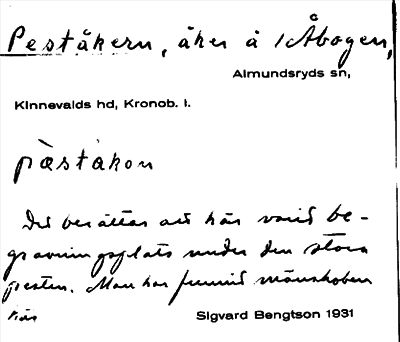 Peståkern, åker å 1 Åbogen,
Almundsryds sn,
Kinnevalds hd, Kronob. l.
pæståkon
Det berättas att här varit be-
gravningsplats under den stora
pesten. Man har funnit mänskoben
här
Sigvard Bengtson 1931